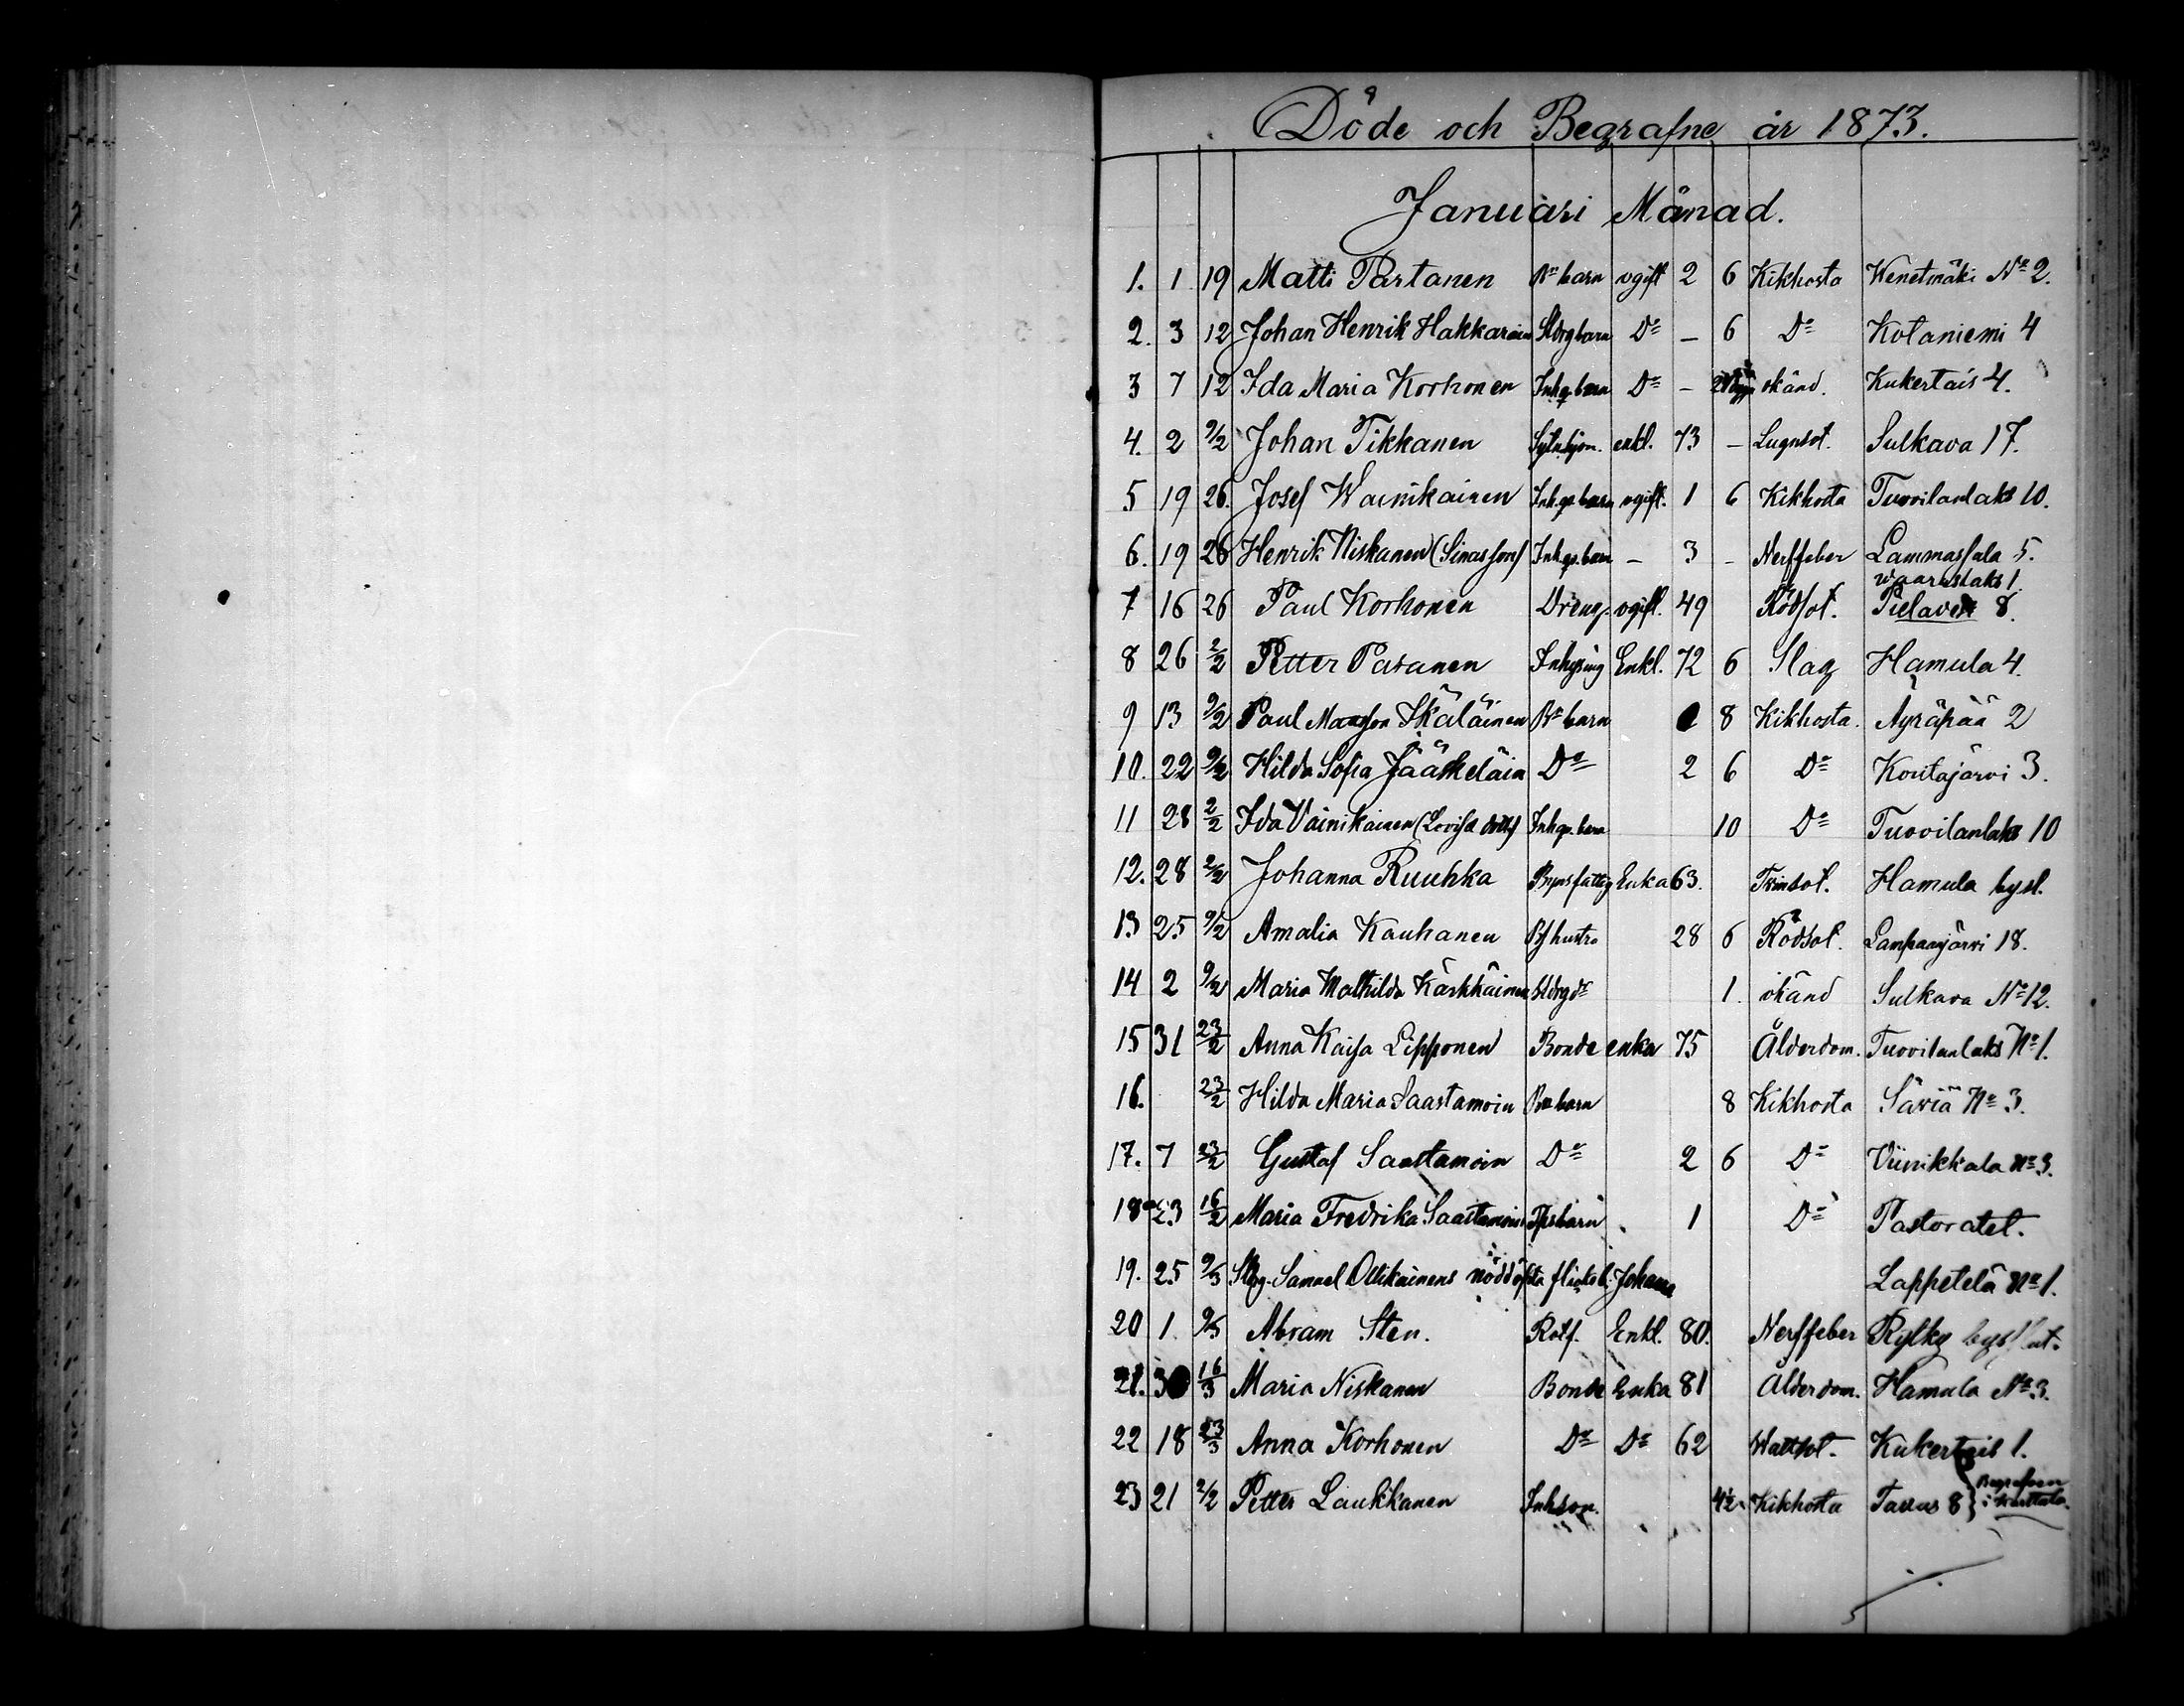 Döde och Begrafne år 1873.
Januari Månad.
1. 1 19 Matti Partanen Bn barn ogift 2 6 Kikhosta Wenetmäki No 2.
2. 3 12 Johan Henrik Hakkarainen Stdrg barn Do - 6 Do Kotaniemi 4
3 7 12 Ida Maria Korhonen Inhgs barn Do - okänd. Kukertais 4.
4. 2 9/2 Johan Tikkanen enkl. 73 - Lugnsot. Sulkava 17.
5 19 26. Josef Wainikainen Inh.gs barn ogift. 1 6 Kikhosta Tuovilanlaks 10.
6. 19 26 Henrik Niskanen (Sinas son) Inh.gs. barn - 3 - Nerffeber Lammassala 5.
waaraslaks 1.
7 16 26 Paul Korhonen Dreng. ogift. 49 Rödsot. Pielaves 8.
8 26 2/2 Petter Pasanen Inhysing Enkl. 72 6 Slag Hamula 4.
9 13 9/2 Paul Mansson Ikäläinen Bn barn 8 Kikhosta. Äyräpää 2
10. 22 9/2 Hilda Sofia Jääskeläin Do 2 6 Do Koutajärvi 3.
11 28 2/2 Ida Vainikainen (Lovisa dotter) Inh.gs. barn 10 Do Tuovilanlaks 10
12. 28 2/2 Johanna Ruuhka Bynsfattig Enka 63. Tvinsot. Hamula bysl.
13 25 9/2 Amalia Kauhanen Bf hustro 28 6 Rödsot. Lampaanjärvi 18.
14 2 9/2 Maria Mathilda Kärkkäinen Stdrg dr 1. okänd Sulkava No 12.
15 31 23/2 Anna Kaisa Lipponen Bonde enka 75 Ålderdom. Tuovilanlaks No 1.
16. 23/2 Hilda Maria Saastamoin Bn barn 8 Kikhosta Säviä No 3.
17. 7 23/2 Gustaf Saastamoin Do 2 6 Do Viinikkala No 3.
18 23 16/2 Maria Fredrika Saastamoin Tpsbarn 1 Do Pastoratet.
19. 25 9/3 Stdrg. Samuel Ollikainens nöddöpta flickeb. Johanna Lappetelä No 1.
20 1. 9/3 Abram Sten. Rotf. Enkl. 80. Nerffeber Rytky
21. 30 16/3 Maria Niskanen Bonde Enka 81 Ålderdom. Hamula No 3.
22 18 23/3 Anna Korhonen Do Do 62 Wattsot. Kukertais 1.
23 21 2/2 Petter Laukkanen Inhson. 4½ Kikhosta Taurus 8 } Begrafven
i Karttula.